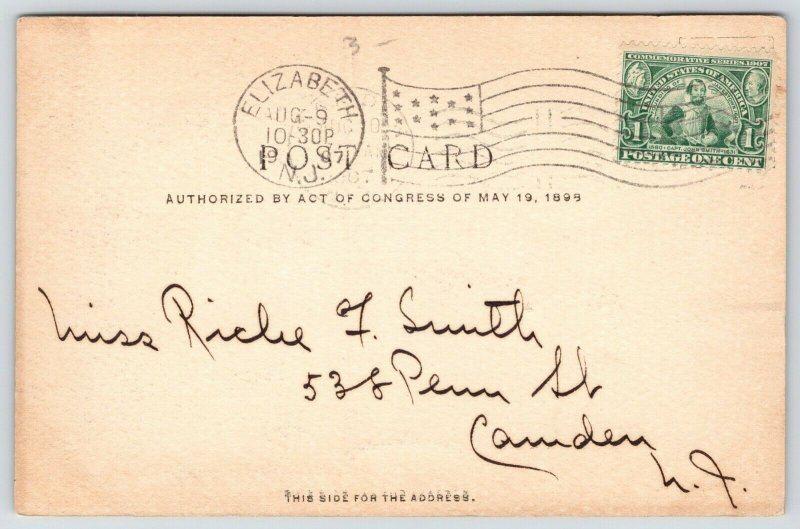 3 -
ELIZABETH
AUG-9
10-30P
07
N.J.
COMMEMORATIVE SERIES 1907
UNITED STATES OF AMERICA
1 1
1580-CAPT. JOHN SMITH-1631
POSTAGE ONE CENT
POST CARD
AUTHORIZED BY ACT OF CONGRESS OF MAY 19, 1898
Miss F. Smith
538 Penn St
Camden
N.J.
THIS SIDE FOR THE ADDRESS.